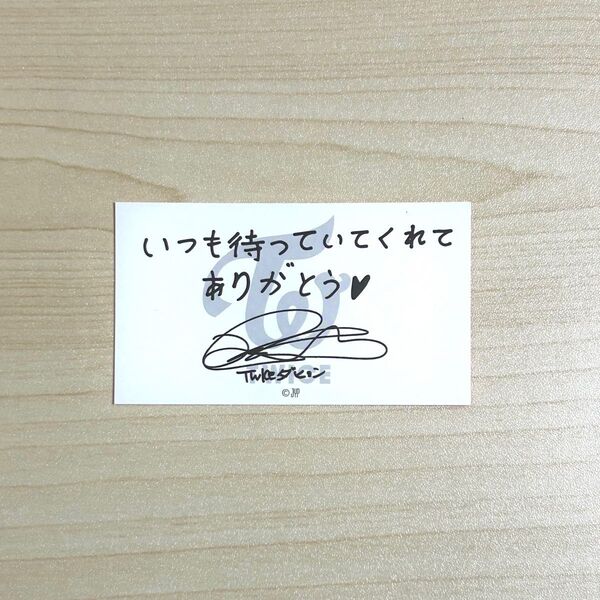 いつも待っていてくれて
ありがとう♥
TWICE ダヒョン
TWICE
©JYP